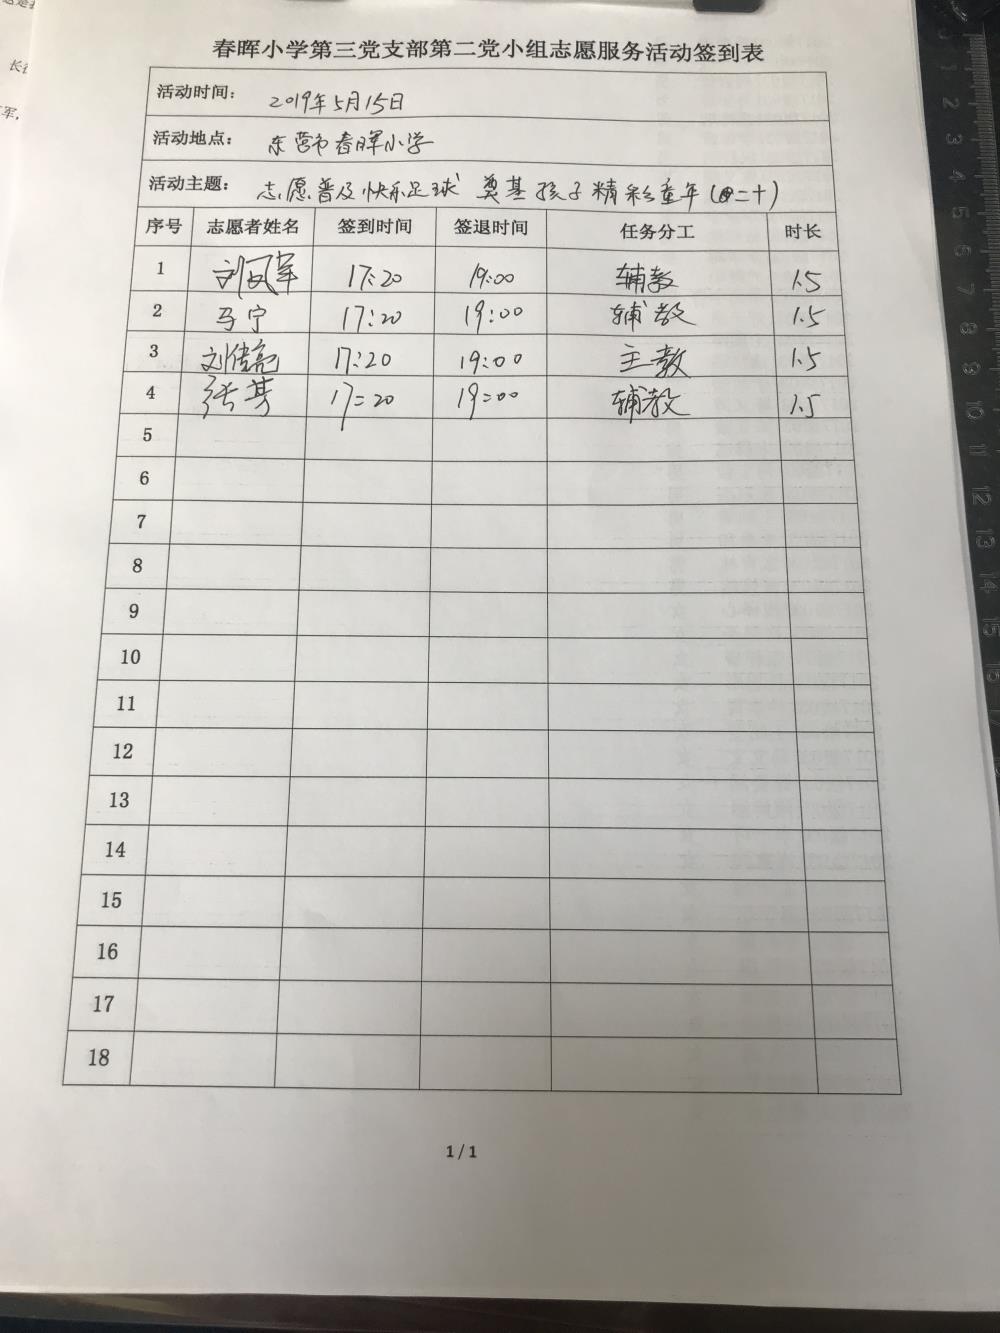 春晖小学第三党支部第二党小组志愿服务活动签到表
活动时间： 2019年5月15日
活动地点： 东营市春晖小学
活动主题： 志愿普及快乐足球 奠基孩子精彩童年(二十)
序号 志愿者姓名 签到时间 签退时间 任务分工 时长
1 刘凤军 17:20 19:00 辅教 1.5
2 马宁 17:20 19:00 辅教 1.5
3 刘倩亮 17:20 19:00 主教 1.5
4 张梦 17:20 19:00 辅教 1.5
5
6
7
8
9
10
11
12
13
14
15
16
17
18
1 / 1